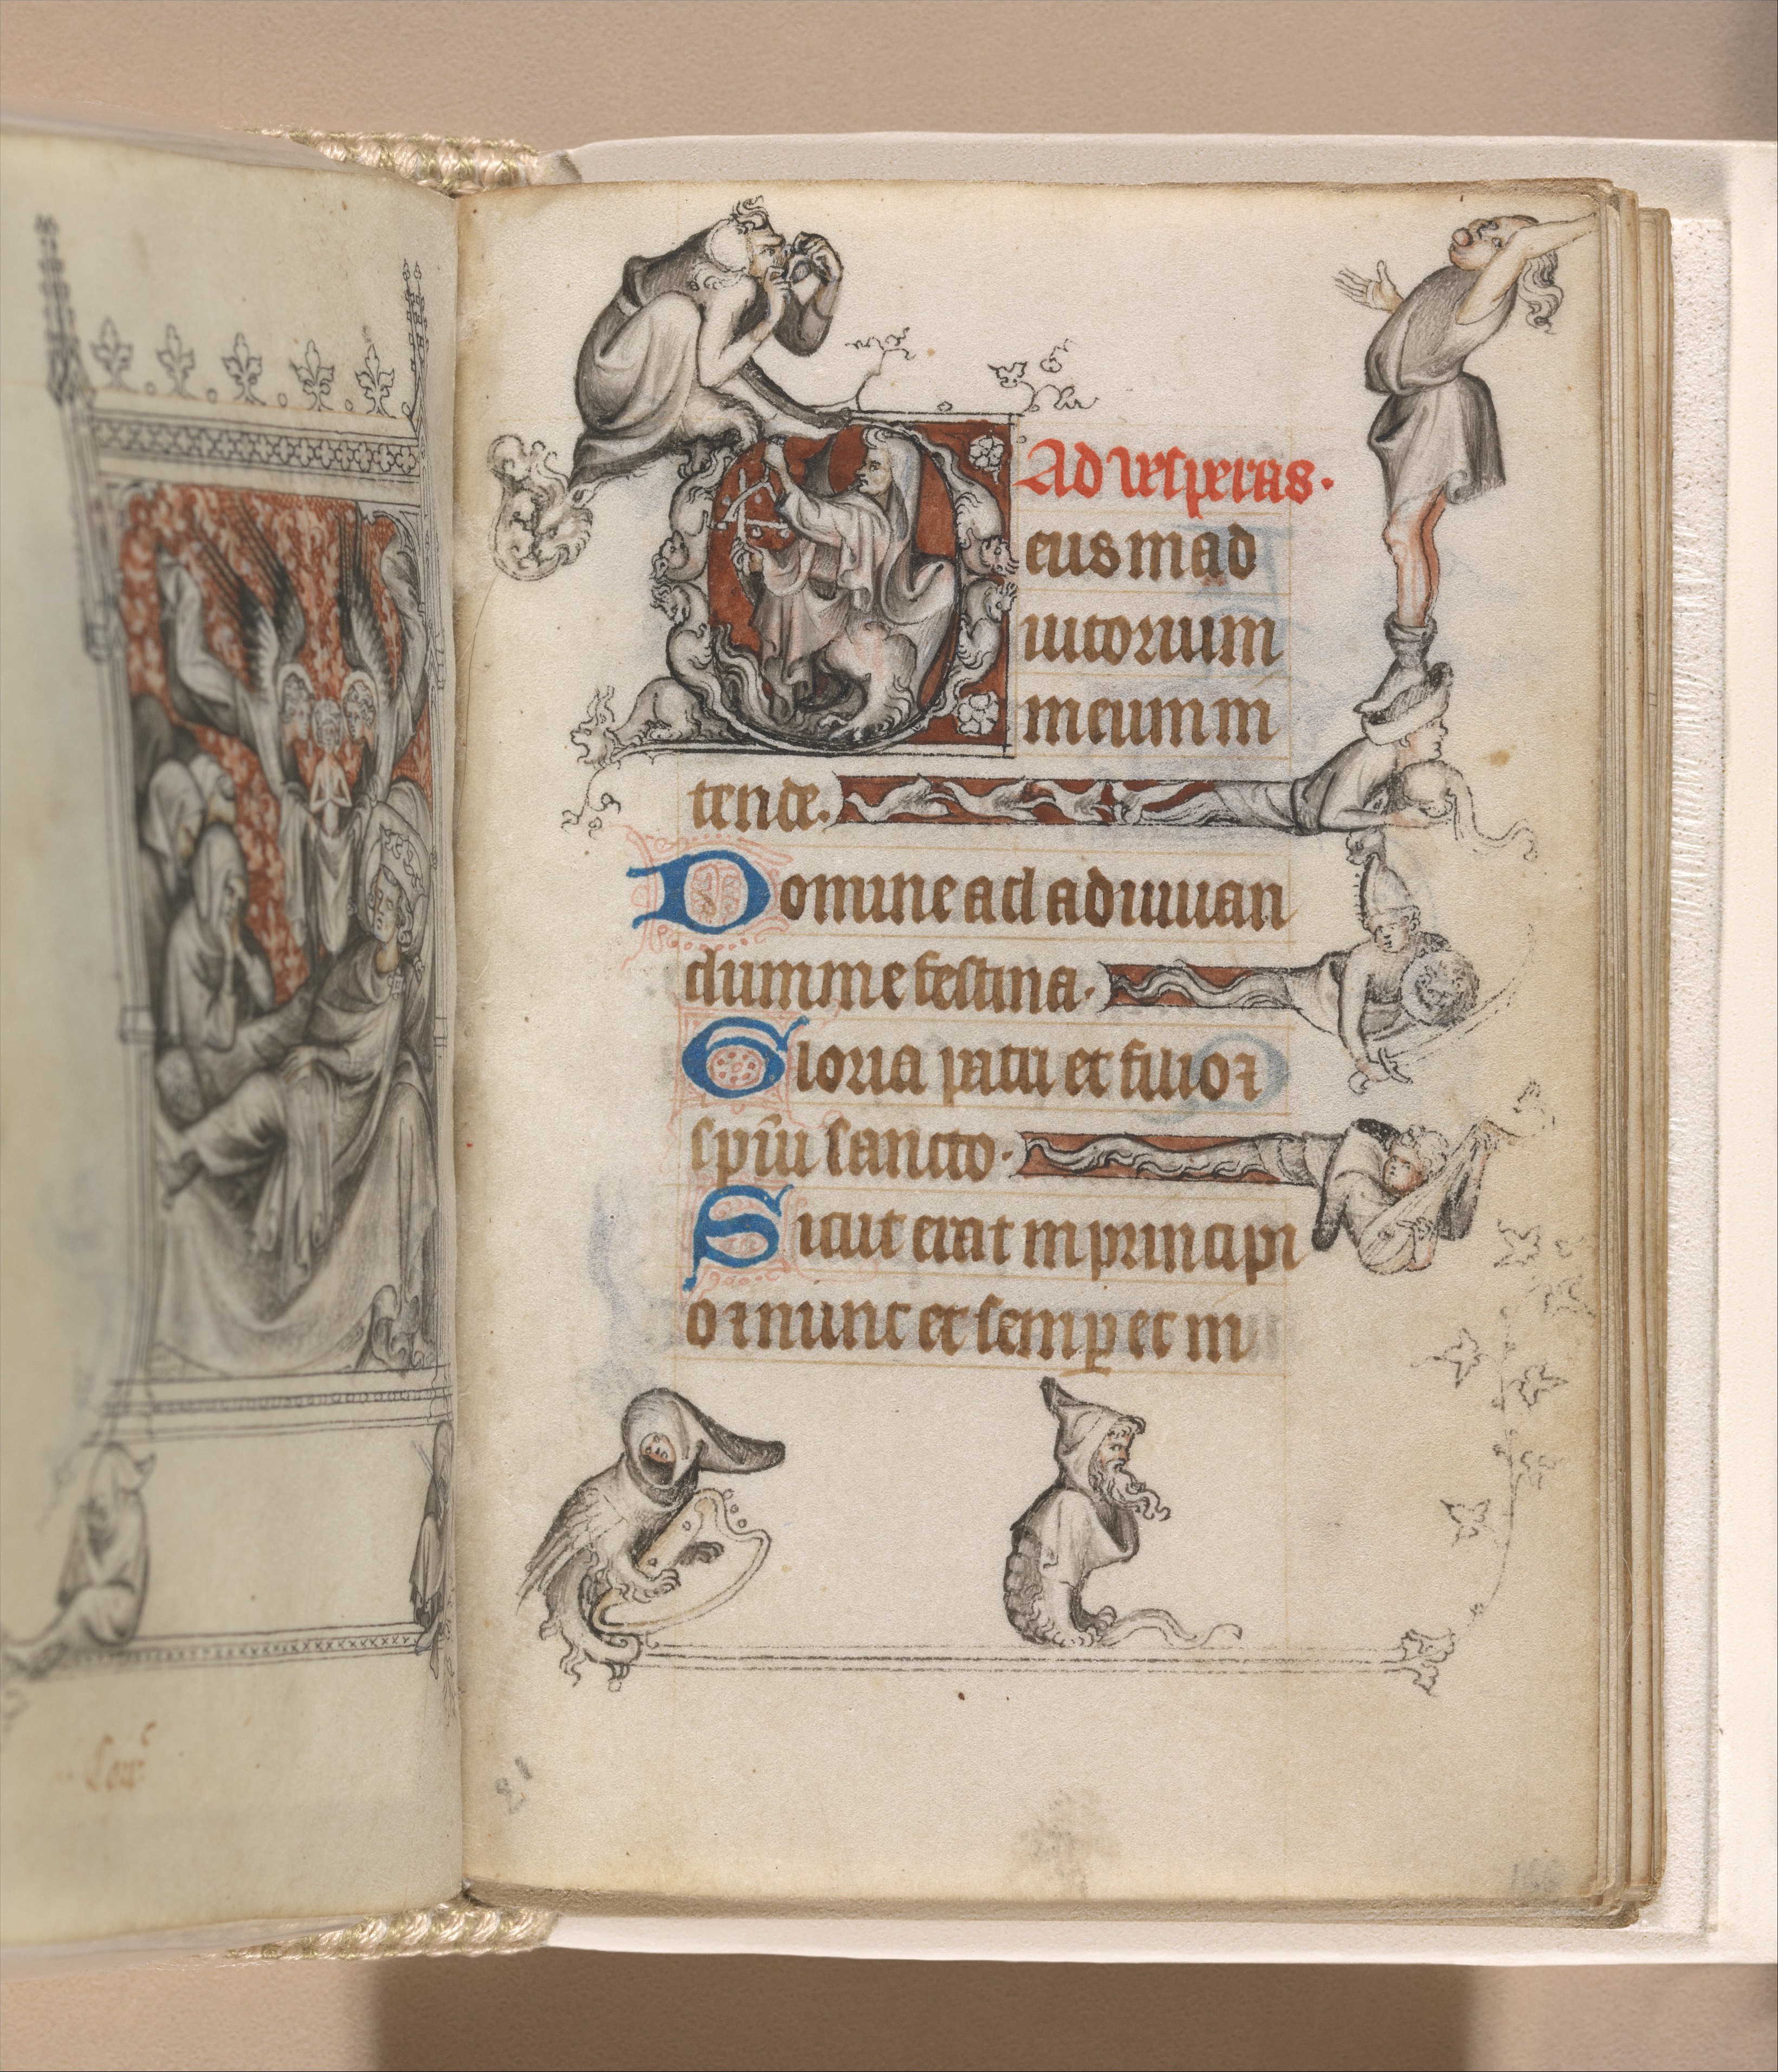 Ad vesperas.
eus in ad
iutorium
meum in
tende.
Domine ad adiuuan
dum me festina.
Gloria patri et filio ⁊
sp̄iu sancto.
Sicut erat in principi
o ⁊ nunc et semꝑ et in